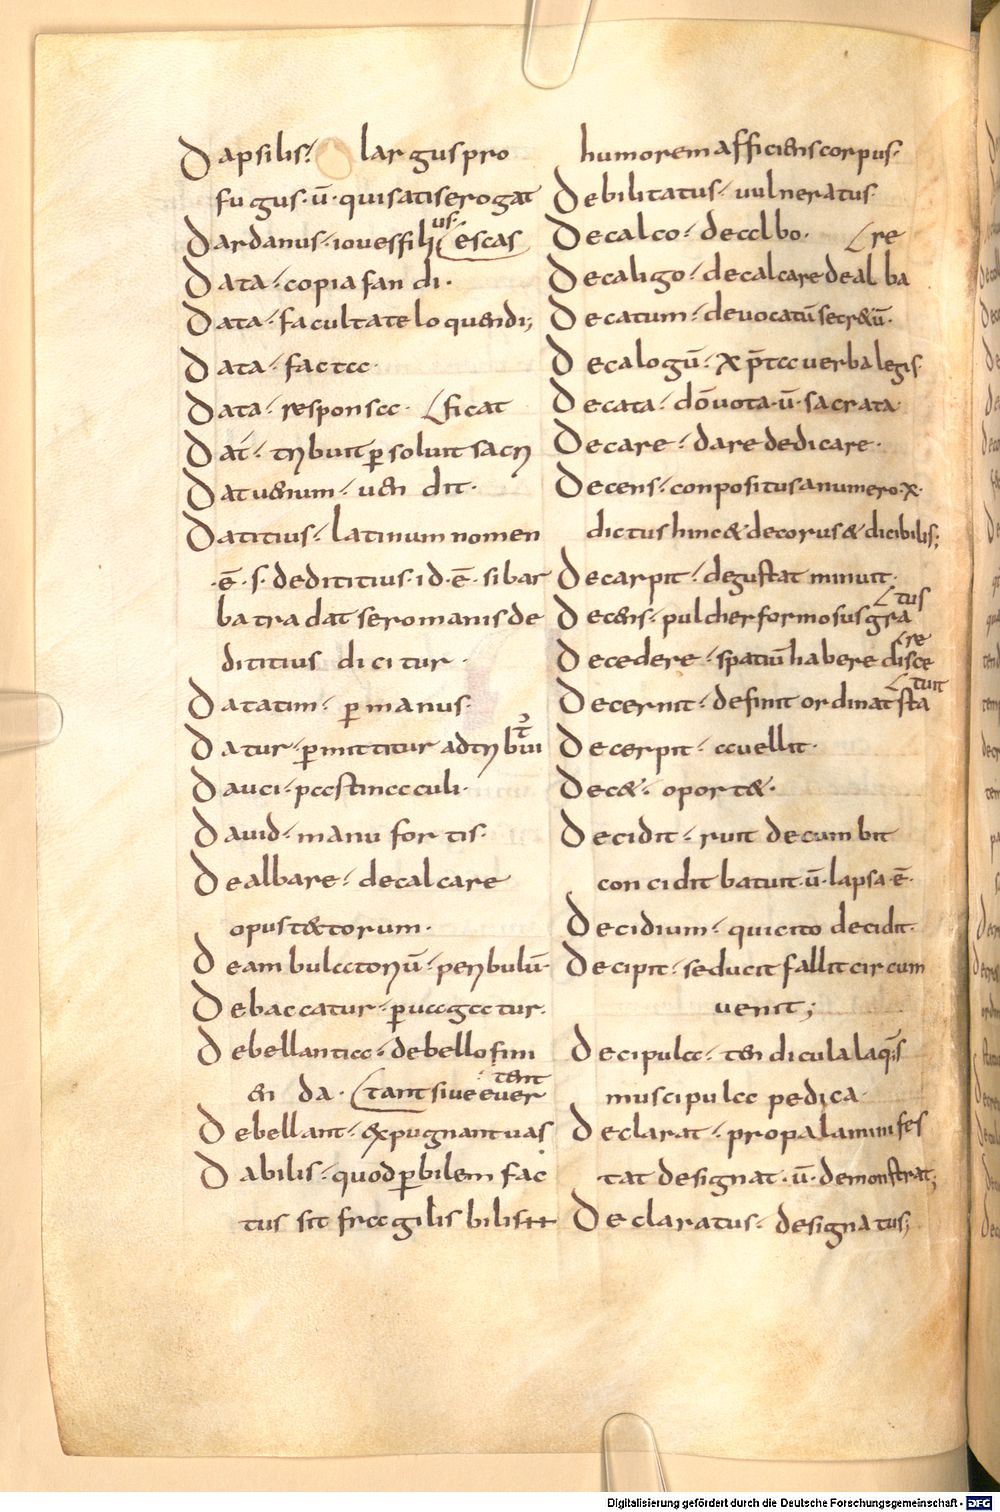 Dapsilis · largus pro
fugus · ū · qui satis erogat
Dardanus · iouesfilius · escas
Data · copia fandi ·
Data · facultate loquendi;
Data · facta ·
Data · responsa · ficat
Dat · tribuit p̱soluit sacri
Dat uenum · uendit ·
Datitius · latinum nomen
· ē · s · dedititius · id · ē · si bar
bara tradat se romanis de
dititius dicitur ·
Datatim · p̱ manus ·
Datur · p̱mittitur ad
Dauci · pastinaculi ·
Dauid · manu fortis ·
Dealbare · decalcare
opus tectorum ·
Deambulatoriū · peribulū
Debaccatur · p̱uagatur ·
Debellantia · debello fini
enda · tant siue euertent
Debellant · expugnant uas
Dabilis · quod p̱ bilem fac
tus sit fragilis bilis
humorem afficiens corpus ·
Debilitatus · uulneratus ·
Decalco · dealbo · re
Decaligo · decalcare dealba
Decatum · deuocatū secretū ·
Decalogū · x p̄ta uerba legis ·
Decata · deuota · ū · sacrata
Decare · dare dedicare ·
Decens · conpositus a numero · x ·
dictus hinc & decorus & dicibilis;
Decarpit · degustat minuit ·
Decens · pulcher formosus gratus
Decedere · spatiū habere discere
Decernit · definit ordinat statuit
Decerpit · auellit ·
Decet · oportet ·
Decidit · ruit decumbit
concidit batuit · ū · lapsa · ē ·
Decidium · qui cito decidit ·
Decipit · seducit fallit circum
uenit;
Decipula · tendicula laq;s
muscipula pedica ·
Declarat · propalam manifes
tat designat · ū · demonstrat;
Declaratus · designatus;
Digitalisierung gefördert durch die Deutsche Forschungsgemeinschaft - DFG